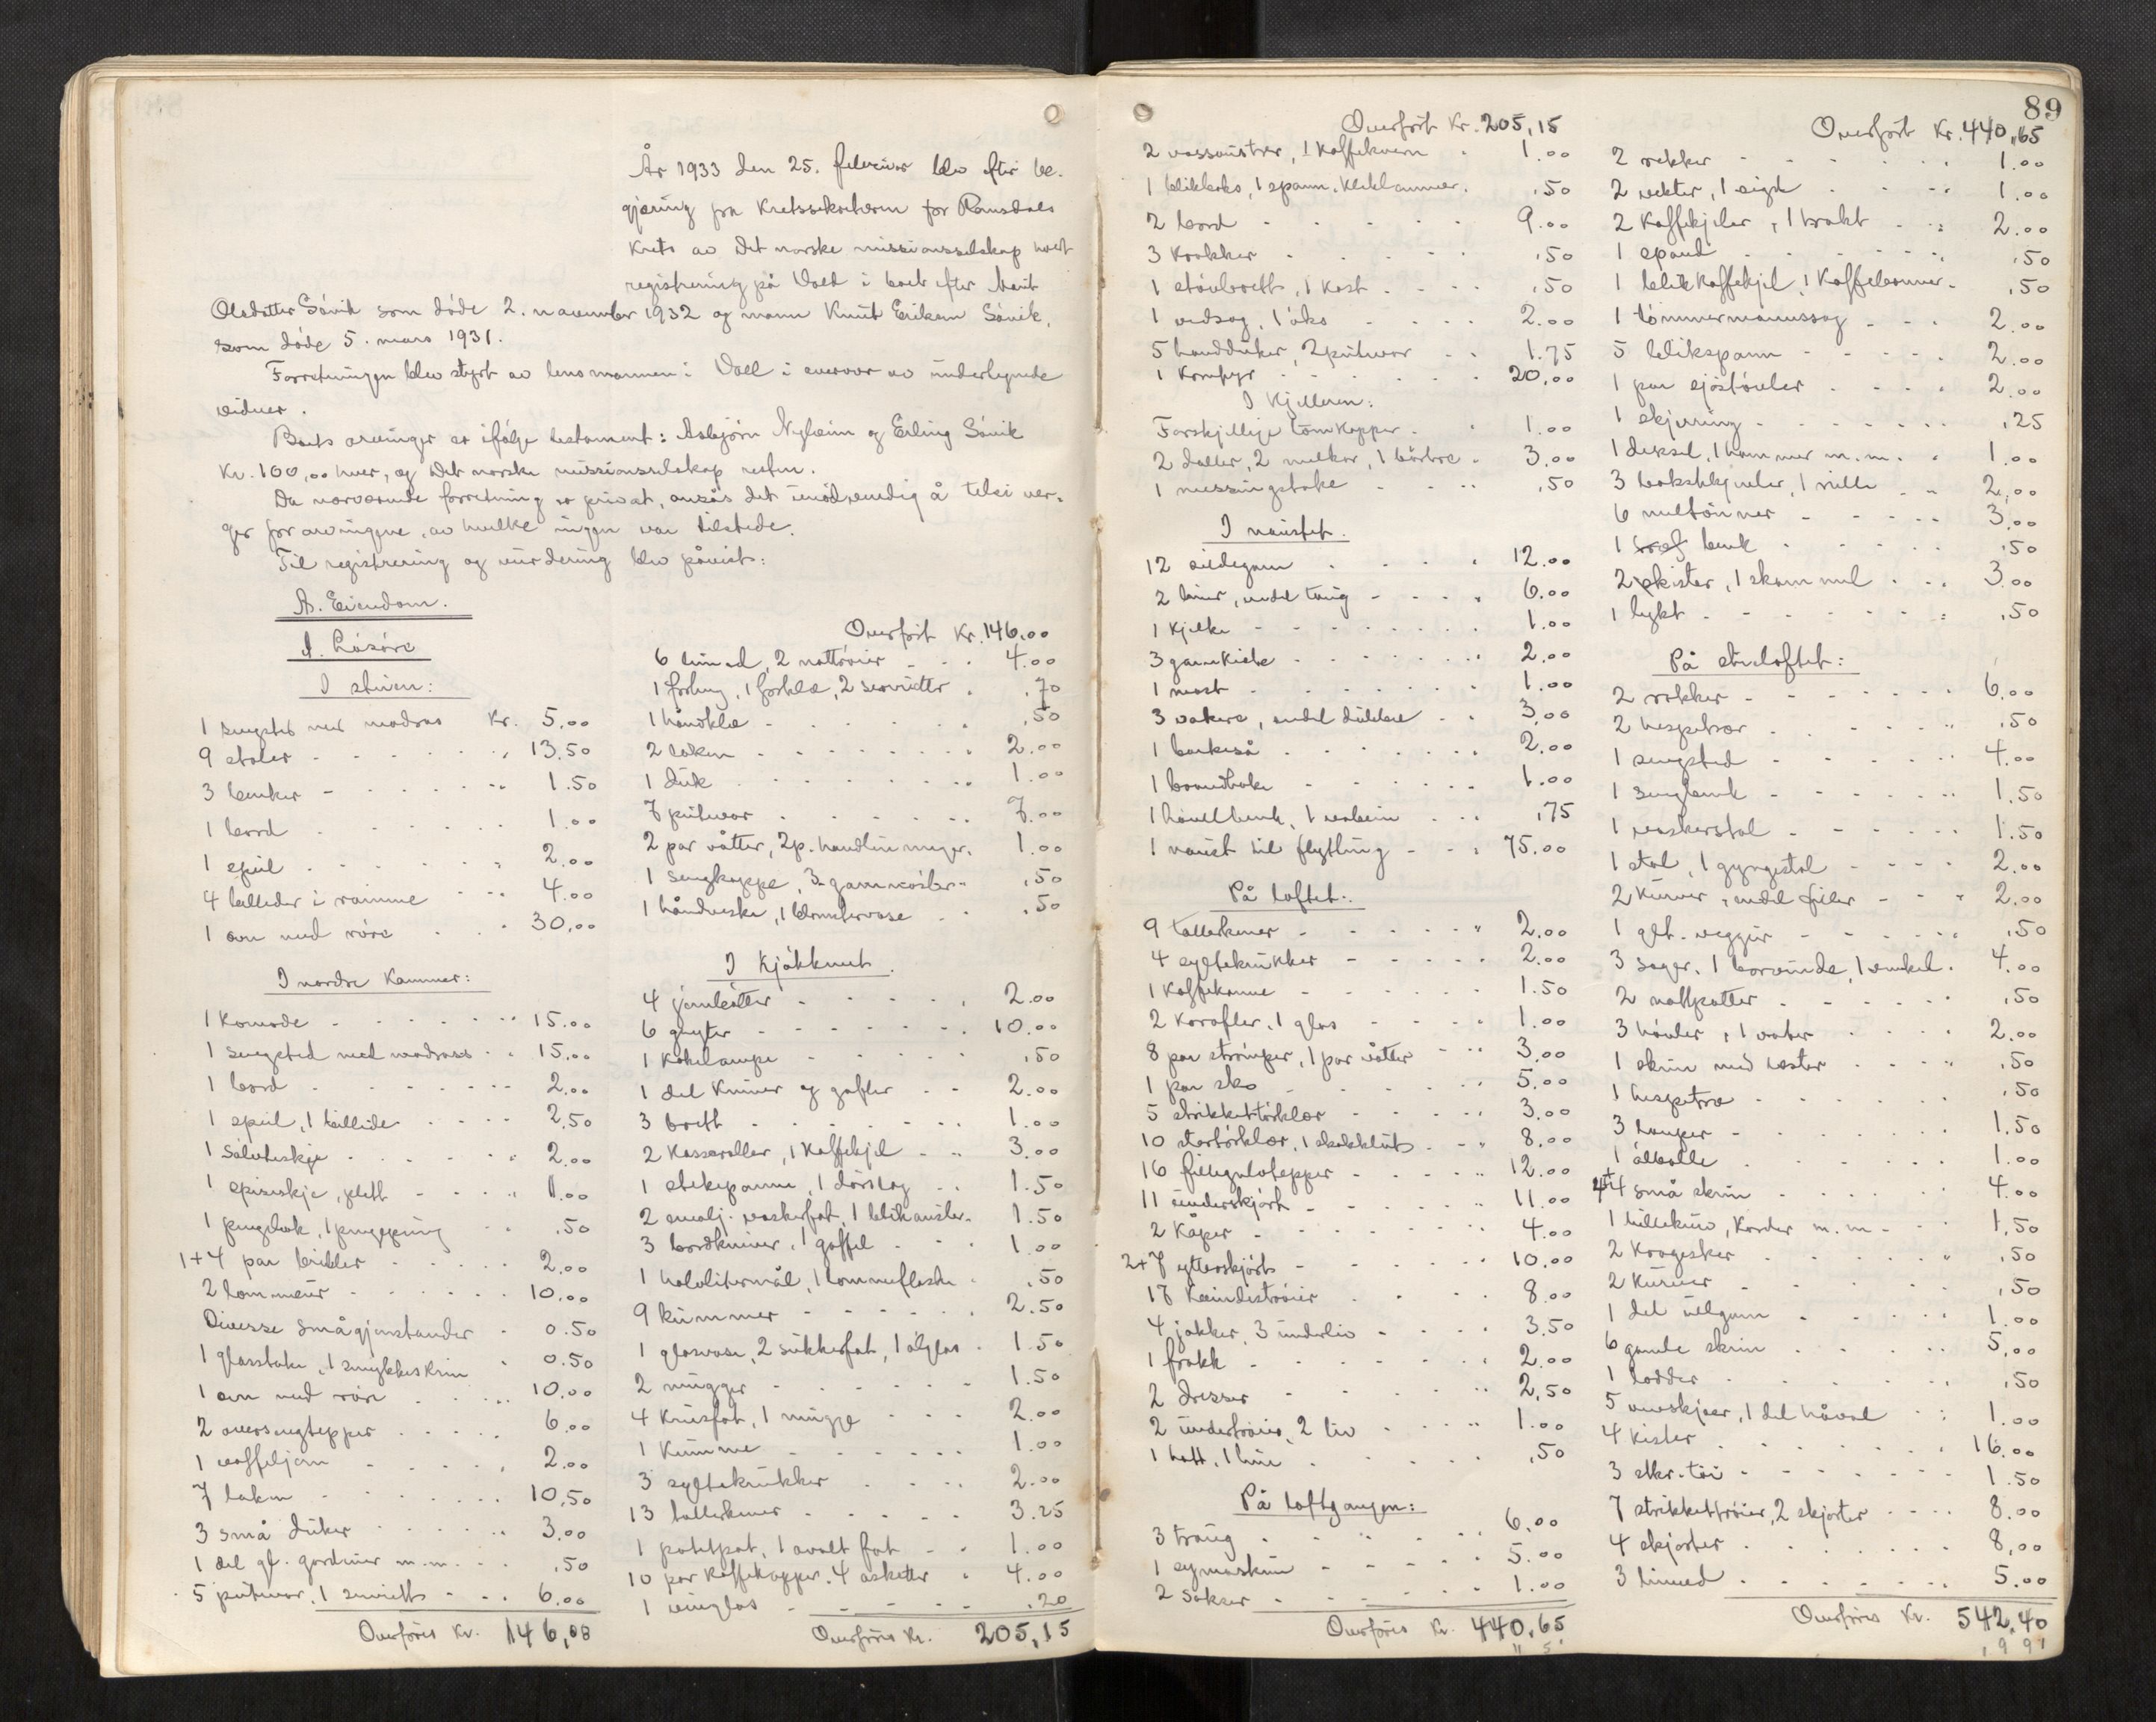 År 1933 den 25. februar blev efter be-
gjæring fra Kretssekretæren for Romsdals
Krets av Det norske missionsselskap holdt
registrering på Voll i boet efter Marit
Olsdatter Sövik som döde 2. november 1932 og mann Knut Eriksen Sövik,
som döde 5. mars 1931.
Forretningen blev styrt av lensmannen i Voll i overvær av underlegnede
vidner.
Boets arvinger er ifölge testament: Asbjörn Nyheim og Erling Sövik
Kr. 100,00 hver, og Det norske missionsselskap resten.
Da nærværende forretning er privat, ansås det unödvendig å tilsi ver-
ger for arvingene, av hvilke ingen var tilstede.
Til registrering og vurdering blev påvist:
A. Eiendom.
I. Lösöre
I stuen:
1 sengsted med madras Kr. 5.00
9 stoler 13.50
3 benker 1.50
1 bord 1.00
1 speil 2.00
4 billeder i ramme 4.00
1 ovn med röre 30.00
I nordre Kammer:
1 Komode 15.00
1 sengsted med madrass 15.00
1 bord 2.00
1 speil, 1 billede 2.50
1 sölvteskje 2.00
1 spiseskje, plett 1.00
1 pengebok, 1 pengepung .50
1+4 par briller 2.00
2 lommeur 10.00
Diverse smågjenstander 0.50
1 glasstake, 1 smykkeskrin 0.50
1 ovn med röre 10.00
2 oversengtepper 6.00
1 vaffeljern 2.00
7 laken 10.50
3 små duker 3.00
1 del gl. gardiner m.m. .50
5 putevar, 1 serviett 6.00
Overföres Kr. 146,00
Overfört Kr. 146.00
6 linned, 2 nattröier 4.00
1 forheng, 1 forklæ, 2 servietter .70
1 håndklæ .50
2 laken 2.00
1 duk 1.00
7 putevar 7.00
2 par våtter, 2 p. handlinninger 1.00
1 sengkappe, 3 garnnöster .50
1 håndveske, 1 blomstervase .50
I Kjökkenet.
4 jernkötter 2.00
6 gryter 10.00
1 Kokelampe .50
1 del Kniver og gafler 2.00
3 brett 1.00
2 Kasseroller, 1 Kaffekjel 3.00
1 stekepanne, 1 dörslag 1.50
2 emalj. vaskefat, 1 blikauster 1.50
3 bordkniver, 1 gaffel 1.00
1 halvlitermål, 1 lommeflaske .50
9 kummer 2.50
1 glasvase, 2 sukkerfat, 1 ölglas 1.50
2 mugger 1.50
4 Krusfat, 1 mugge 2.00
1 Kumme 1.00
3 syltekrukker 2.00
13 tallerkener 3.25
1 potetfat, 1 ovalt fat 1.00
10 par Kaffekopper, 4 asketter 4.00
1 vinglas .20
Overföres Kr. 205,15
89
Overfört Kr. 205,15
2 vassbötter, 1 Kaffekvern 1.00
1 blikboks, 1 spann, blikkanner .50
2 bord 9.00
3 Krakker .50
1 stövbrett, 1 Kost .50
1 vedsag, 1 öks 2.00
5 handduker, 2 putevar 1.75
1 Komfyr 20.00
I Kjelleren:
Forskjellige tömkopper 1.00
2 daller, 2 melkar, 1 börtre 3.00
1 messingstake .50
I naustet.
12 sildegarn 12.00
2 liner, endel taug 6.00
1 Kjelke 1.00
3 garnkiste 2.00
1 mast 1.00
3 vakere, endel dubbel 3.00
1 barkeså 2.00
1 brandhake 1.00
1 hövelbenk, 1 vabein .75
1 naust til flytting 75.00
På loftet:
9 tallerkener 2.00
4 syltekrukker 2.00
1 Kaffekanne 1.50
2 Karafler, 1 glas 1.00
8 par strömper, 1 par våtter 3.00
1 par sko 5.00
5 strikketörklær 3.00
10 stortörklær, 1 skakklut 8.00
16 fillegulvtepper 12.00
11 underskjört 11.00
2 Kåper 4.00
2+7 ytterskjört 10.00
17 Kvindetröier 8.00
4 jakker, 3 underliv 3.50
1 frakk 2.00
2 dresser 2.50
2 undertröier, 2 liv 1.00
1 hatt, 1 hue .50
På loftgangen:
3 traug 6.00
1 symaskin 5.00
2 sakser 1.00
Overföres Kr. 440,65
Overfört Kr. 440,65
2 rokker 1.00
2 vekter, 1 sigd 1.00
2 Kaffekjeler, 1 trakt 2.00
1 spand .50
1 blikkaffekjel, 1 Kaffebrenner .50
1 tömmermannssag 2.00
5 blikspann 2.00
1 par sjöstövler 2.00
1 skjerring .25
1 deksel, 1 hammer m.m. 1.00
3 bakstkjevler, 1 rulle 2.00
6 meltönner 3.00
1 benk .50
2 kister, 1 skammel 3.00
1 lykt .50
På stueloftet:
2 rokker 6.00
2 hespetrær .50
1 sengsted 4.00
1 sengbenk 1.50
1 vaskerstol 1.50
1 stol, 1 gyngestol 2.00
2 Kurver, endel filler 2.00
1 glt. veggur .50
3 sager, 1 borvinde, 1 vinkel 4.00
2 nattpotter .50
3 hövler, 1 vater 2.00
1 skrin med rester .50
1 hespetre .50
3 lamper 1.50
1 ölbolle 1.00
4 små skrin 4.00
1 tollekniv, Karder m.m. 1.50
2 Kragesker .50
2 Kurver .50
1 del ullgarn 1.00
6 gamle skrin 5.00
1 lodder .50
5 ureskjær, 1 del håvel 1.00
4 Kister 16.00
3 stkr. töi 1.50
7 strikketröier, 2 skjorter 8.00
4 skjorter 8.00
3 linned 5.00
Overföres Kr. 542,40